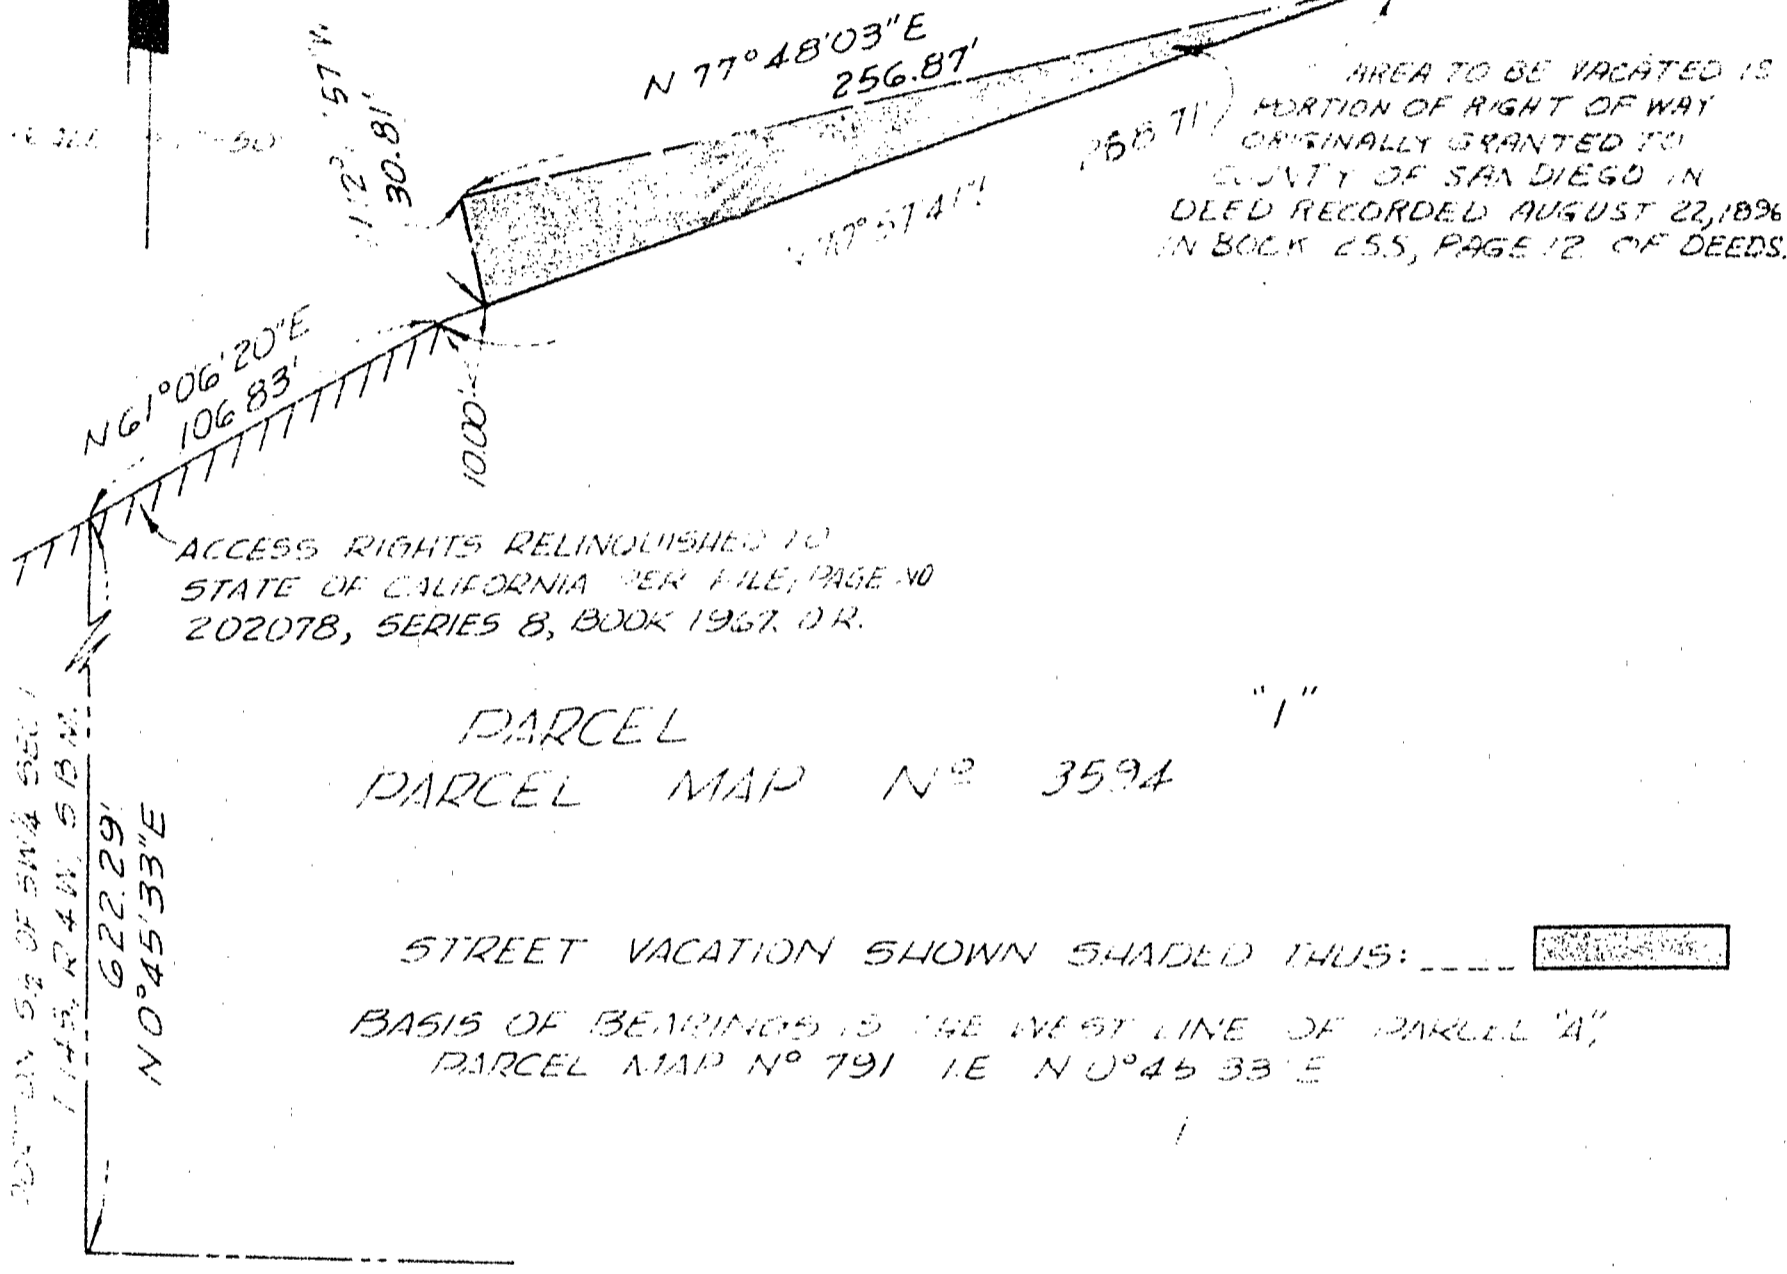 N 77°48'03"E
256.87'
30.81'
AREA TO BE VACATED IS
PORTION OF RIGHT OF WAY
ORIGINALLY GRANTED TO
COUNTY OF SAN DIEGO IN
DEED RECORDED AUGUST 22, 1896
IN BOOK 255, PAGE 12 OF DEEDS.
N 61°06'20"E
106.83'
10.00'
ACCESS RIGHTS RELINQUISHED TO
STATE OF CALIFORNIA PER FILE/PAGE NO
202078, SERIES 8, BOOK 1967. O.R.
PARCEL "1"
PARCEL MAP Nº 3594
OF SW¼ SEC 1
R 4 W, S B M.
622.29'
N 0°45'33"E
STREET VACATION SHOWN SHADED THUS:
BASIS OF BEARINGS IS THE WEST LINE OF PARCEL "A",
PARCEL MAP Nº 791 I.E N 0°45'33"E